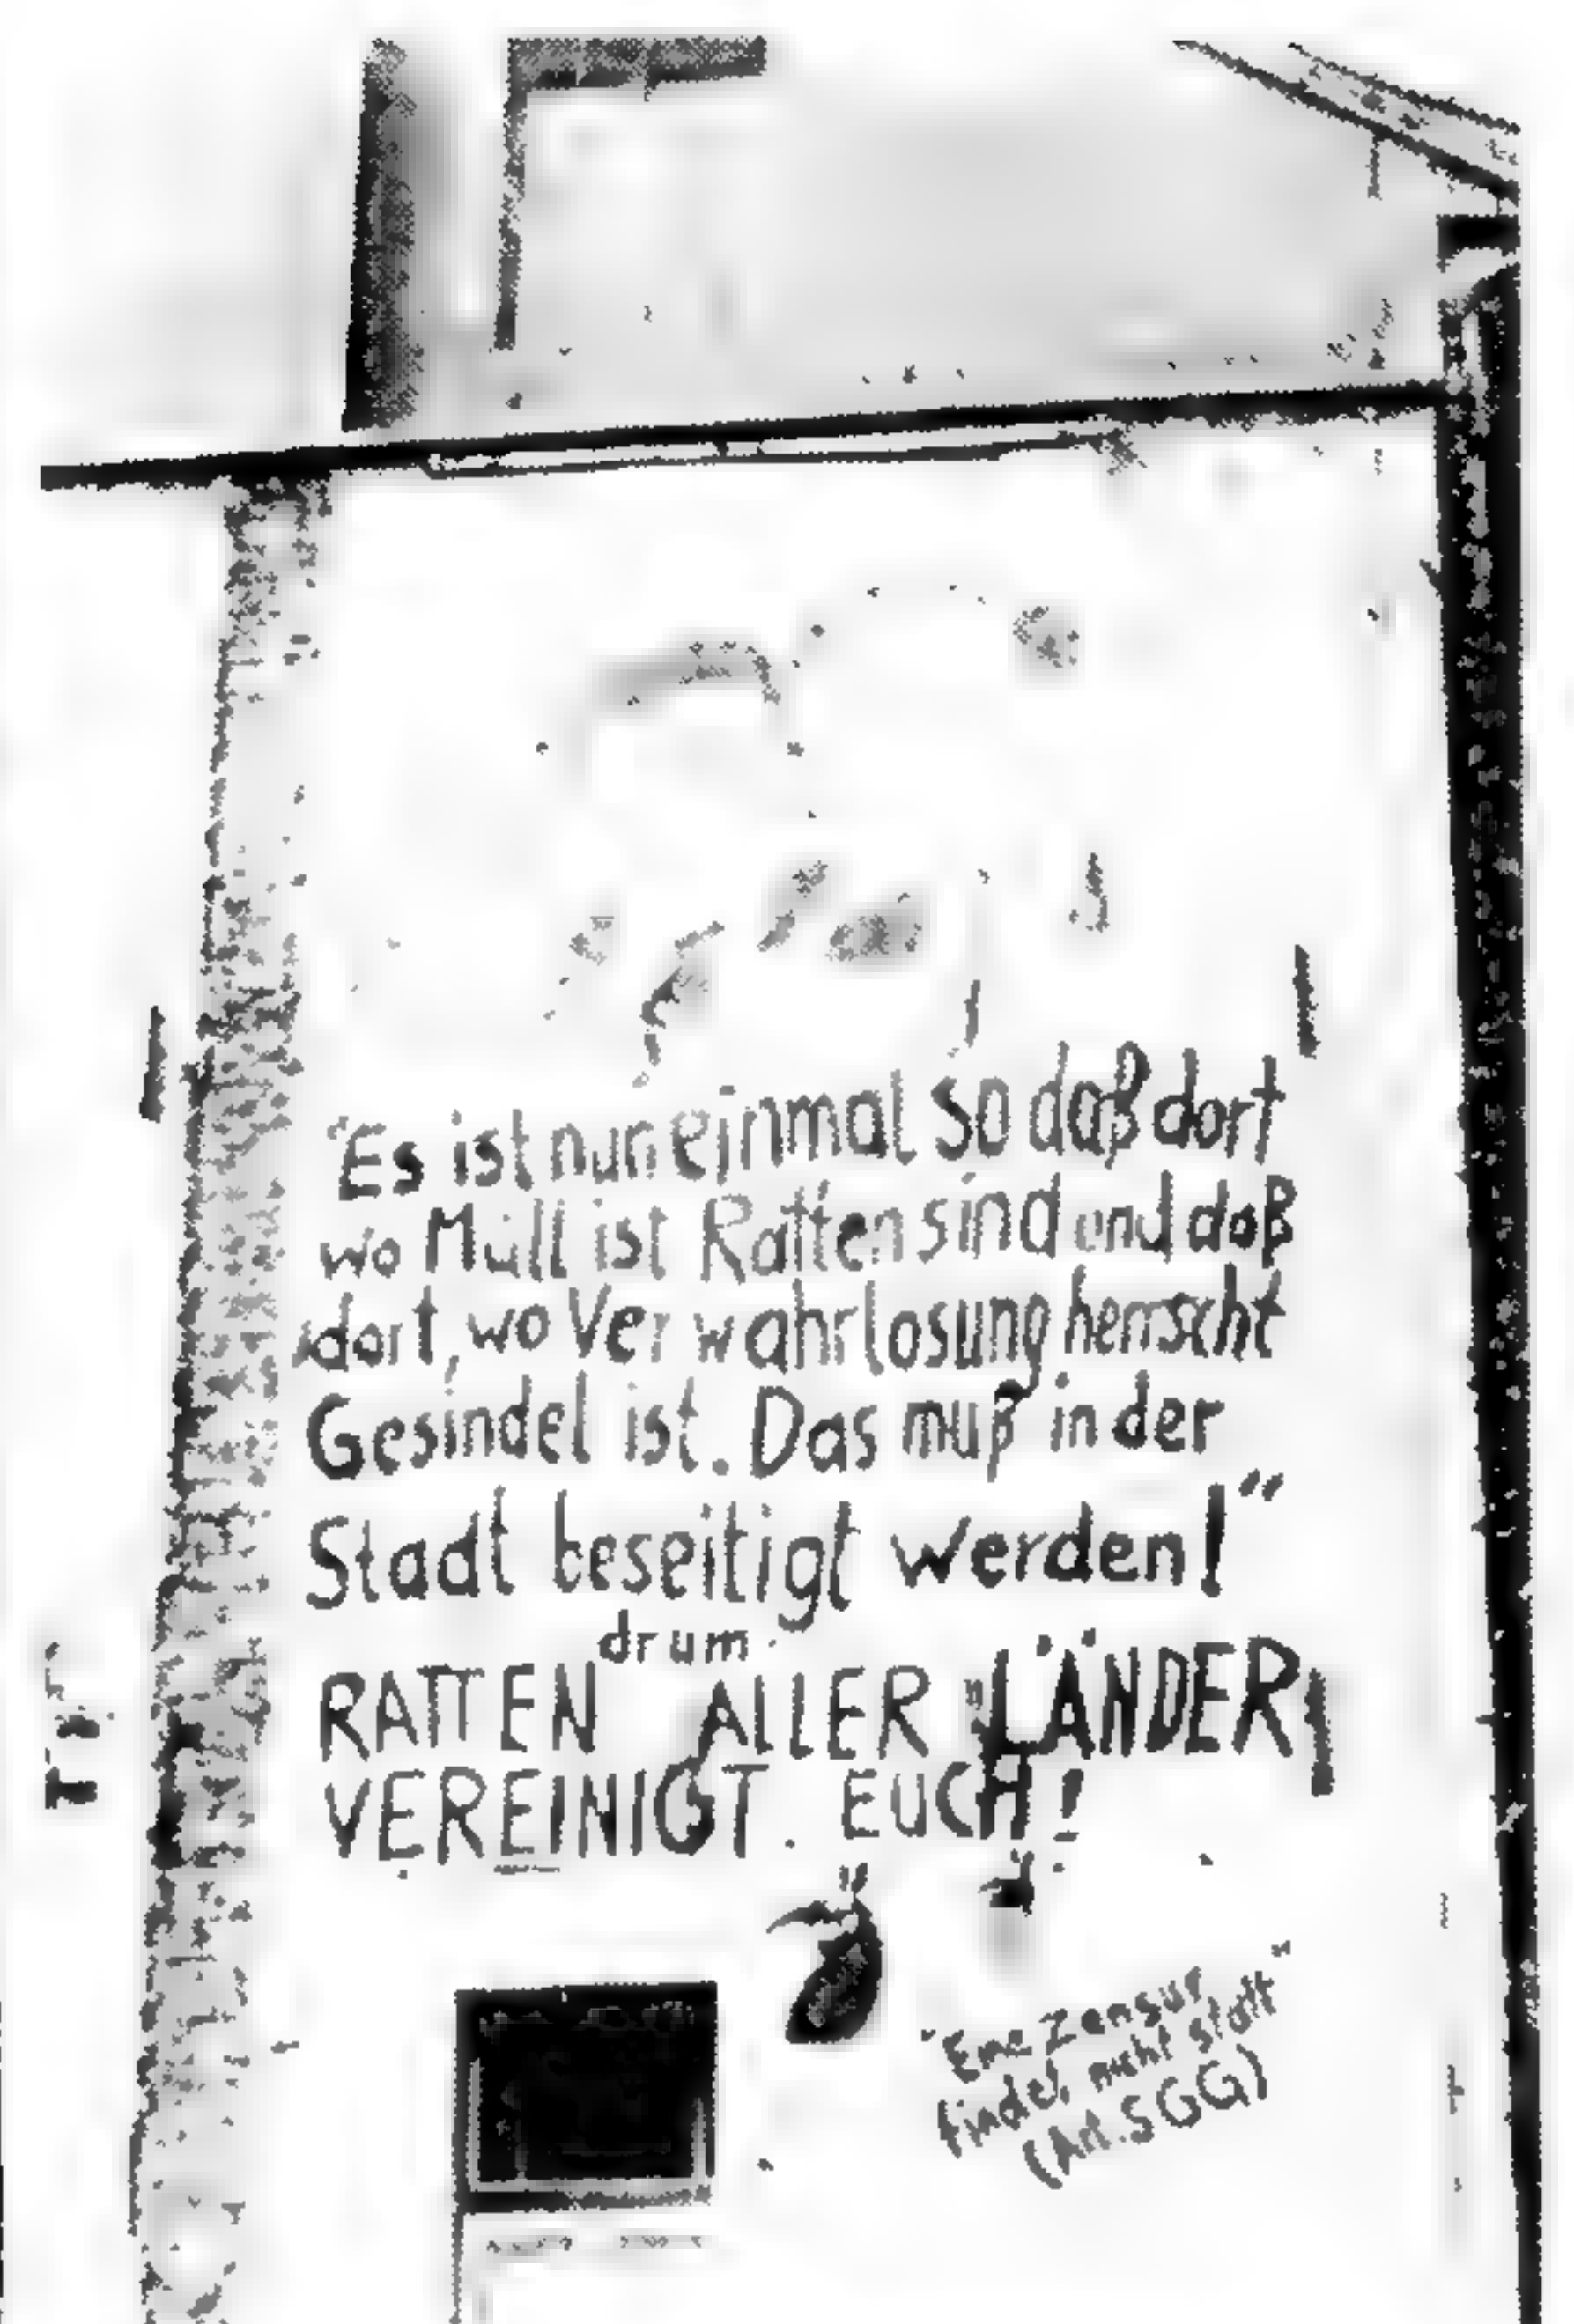 "Es ist nun einmal so daß dort
wo Müll ist Ratten sind und daß
dort, wo Verwahrlosung herrscht
Gesindel ist. Das muß in der
Stadt beseitigt werden!"
drum
RATTEN ALLER LÄNDER
VEREINIGT EUCH!
"Eine Zensur
findet nicht statt"
(Art. 5 GG)